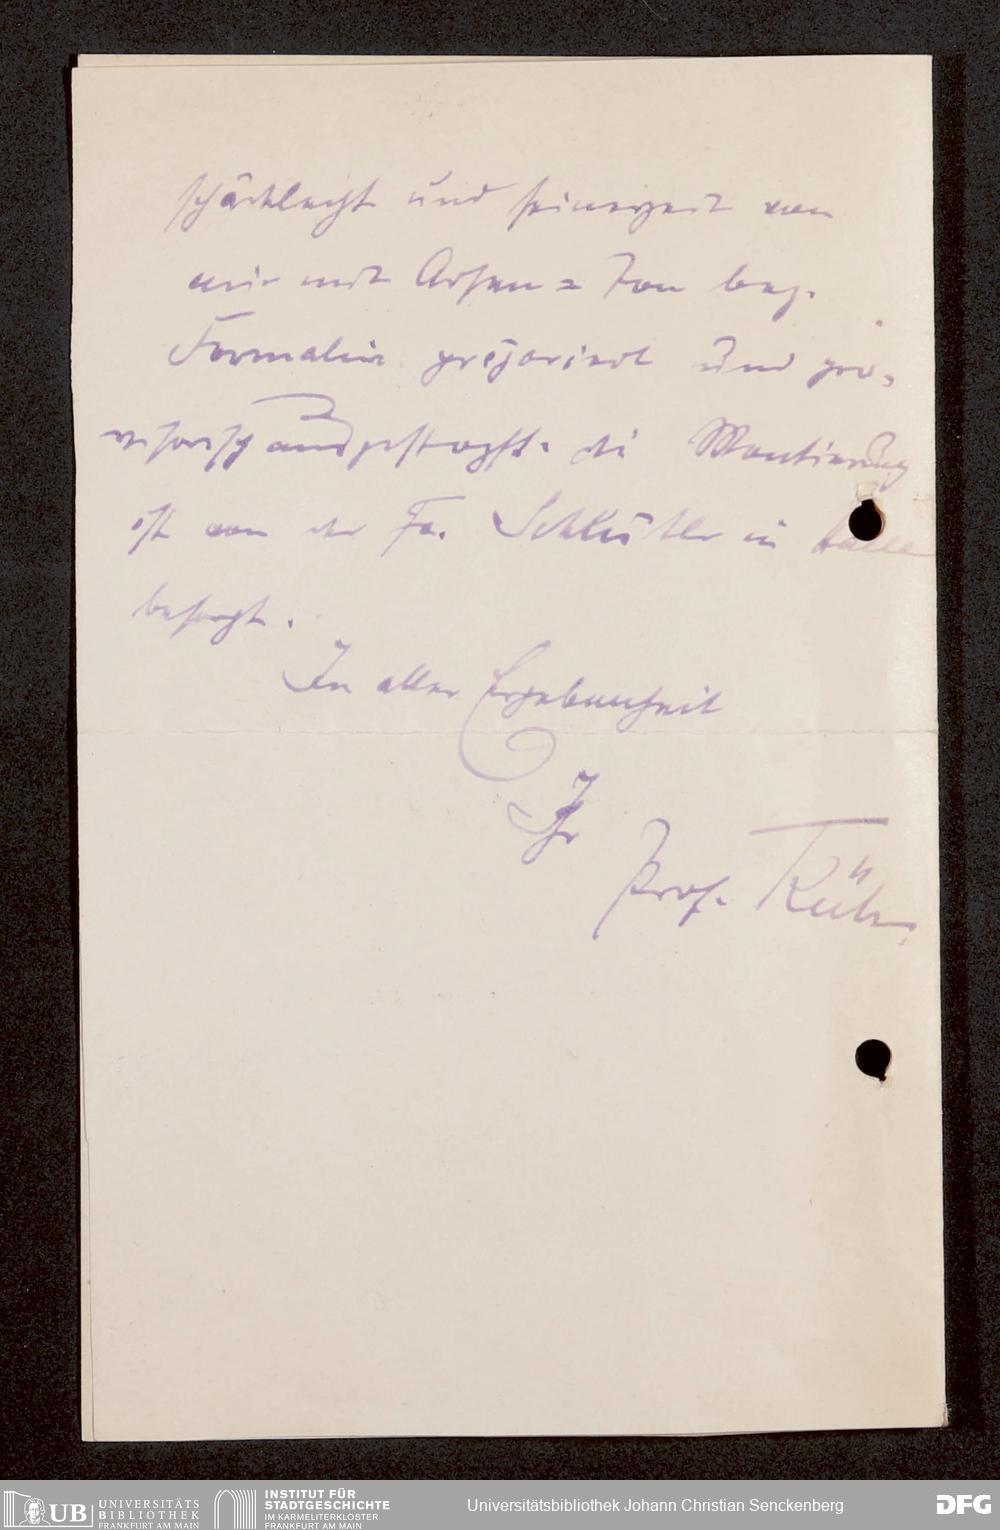 und seinerzeit von
mir mit Arsen = Ton bez.
Formalin präpariert und pro-
visorisch ausgestopft. die Montierung
ist von der Fa. Schlüter in Halle
besorgt.
In aller Ergebenheit
Ihr
Prof. Küh
UB UNIVERSITÄTS
BIBLIOTHEK
FRANKFURT AM MAIN
INSTITUT FÜR
STADTGESCHICHTE
IM KARMELITERKLOSTER
FRANKFURT AM MAIN
Universitätsbibliothek Johann Christian Senckenberg
DFG